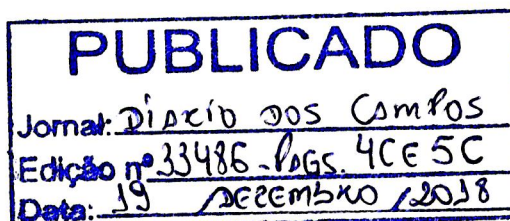 PUBLICADO
Jornal: Diário dos Campos
Edição nº 33486 - PAGS. 4C E 5C
Data: 19 DEZEMBRO / 2018